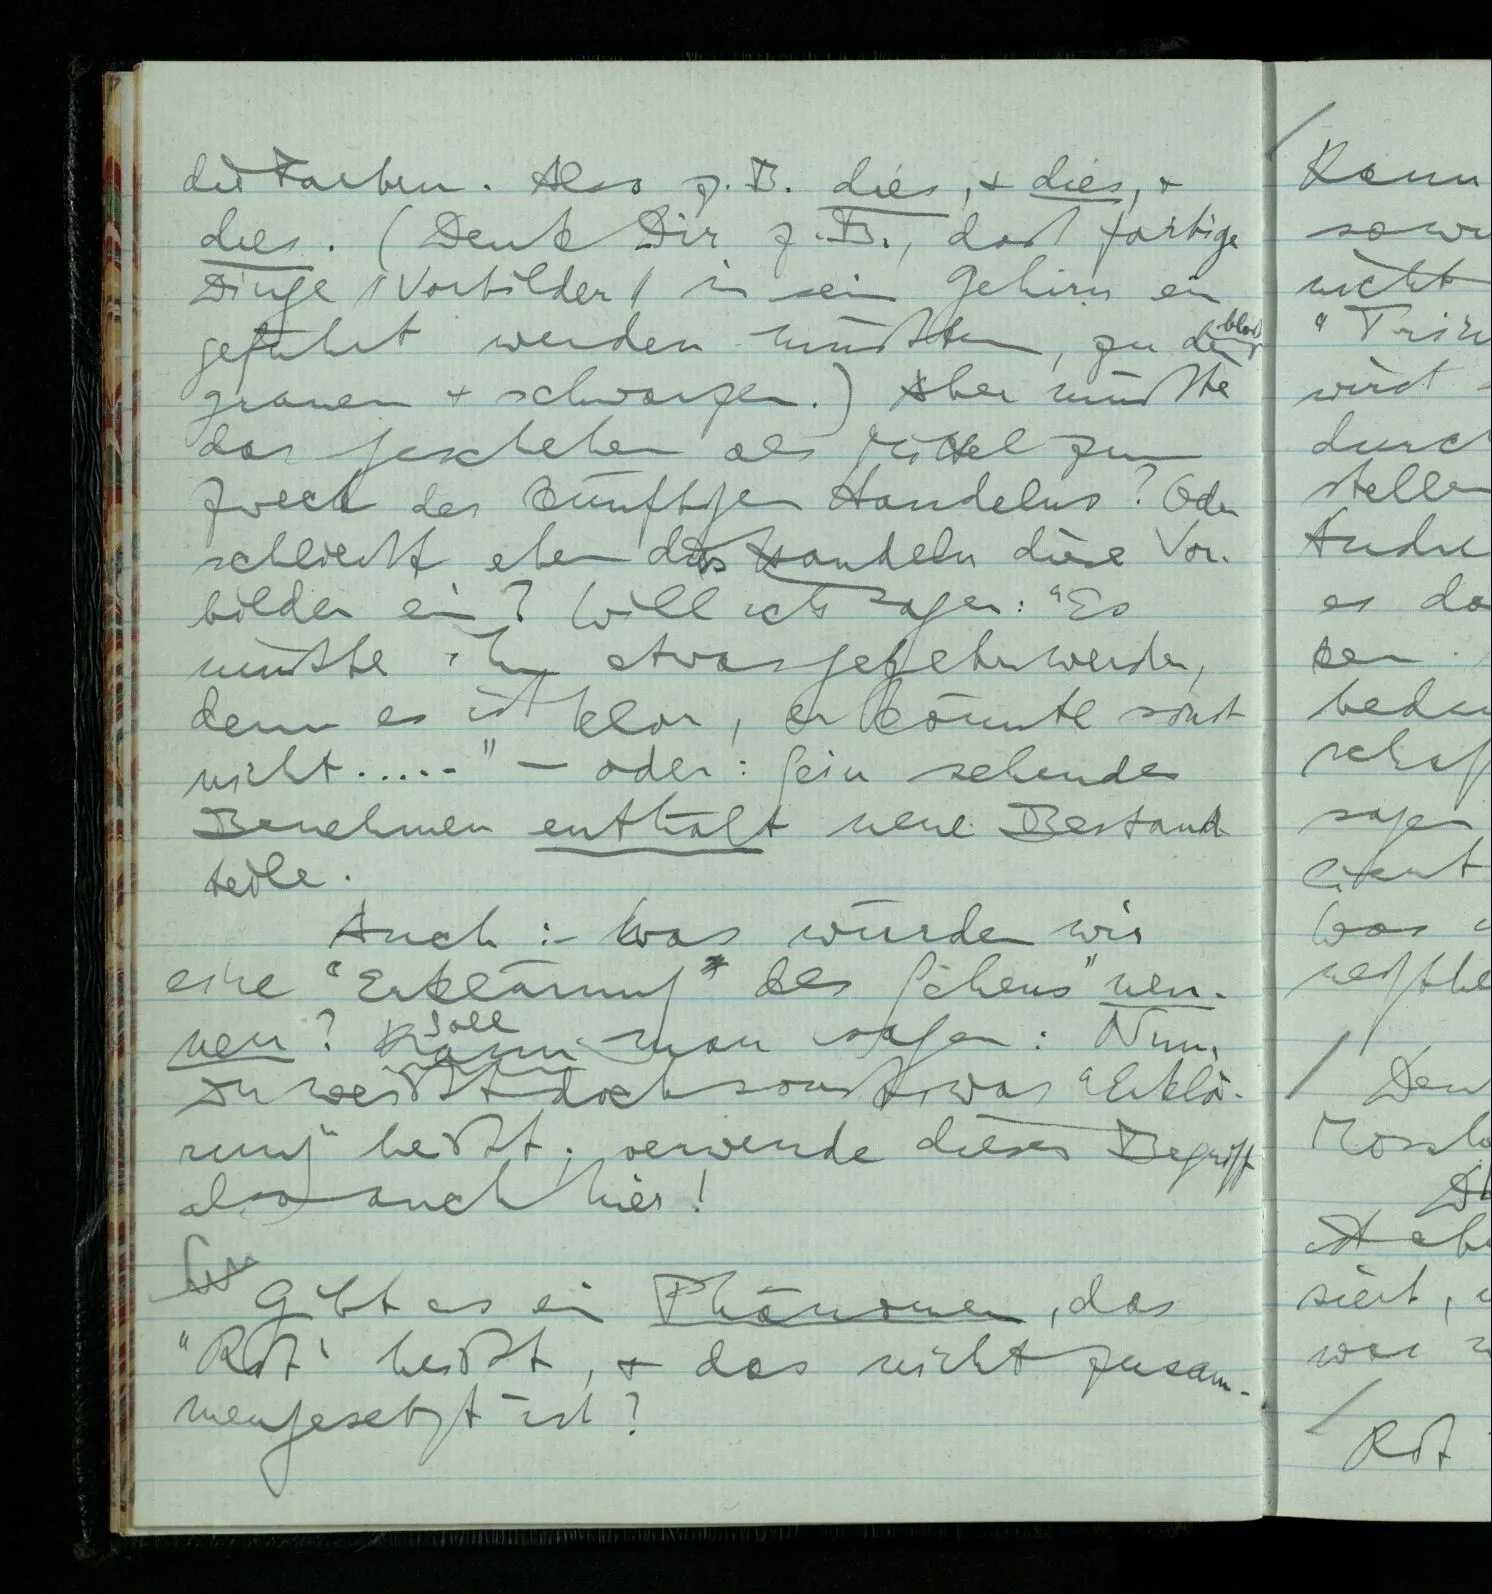 die Farben. Also z.B. dies, & dies, &
dies. (Denk Dir z.B., daß farbige
Dinge (Vorbilder) in sein Gehirn ein
geführt werden müßten, zu den bloß
grauen & schwarzen.) Aber müßte
das geschehen als Mittel zum
Zweck des künftigen Handelns? Oder
schließt eben das Handeln diese Vor-
bilder ein? Will ich sagen: "Es
müßte ihm etwas gegeben werden,
denn es ist klar, er könnte sonst
nicht....." – oder: Sein sehendes
Benehmen enthält neue Bestand
teile.
Auch:– Was würden wir
eine "Erklärung des Sehens" nen-
nen? Soll man sagen: Nun,
Du weißt doch sonst was "Erklä-
rung" heißt; verwende diesen Begriff
also auch hier!
Gibt es ein Phänomen, das
"Rot" heißt, & das nicht zusam-
mengesetzt ist?
Kann
nicht
wird
durch
stellen
Andre
es
sagen
Was
Den
Rot